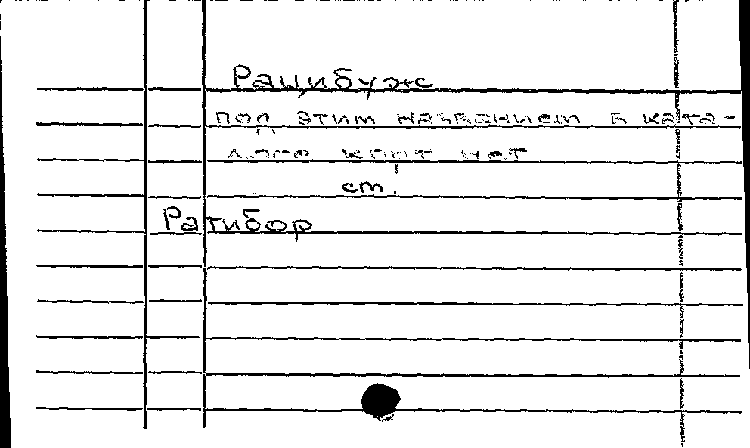 Рацибуж
под этим названием в ката-
логе карт нет
см.
Ратибор